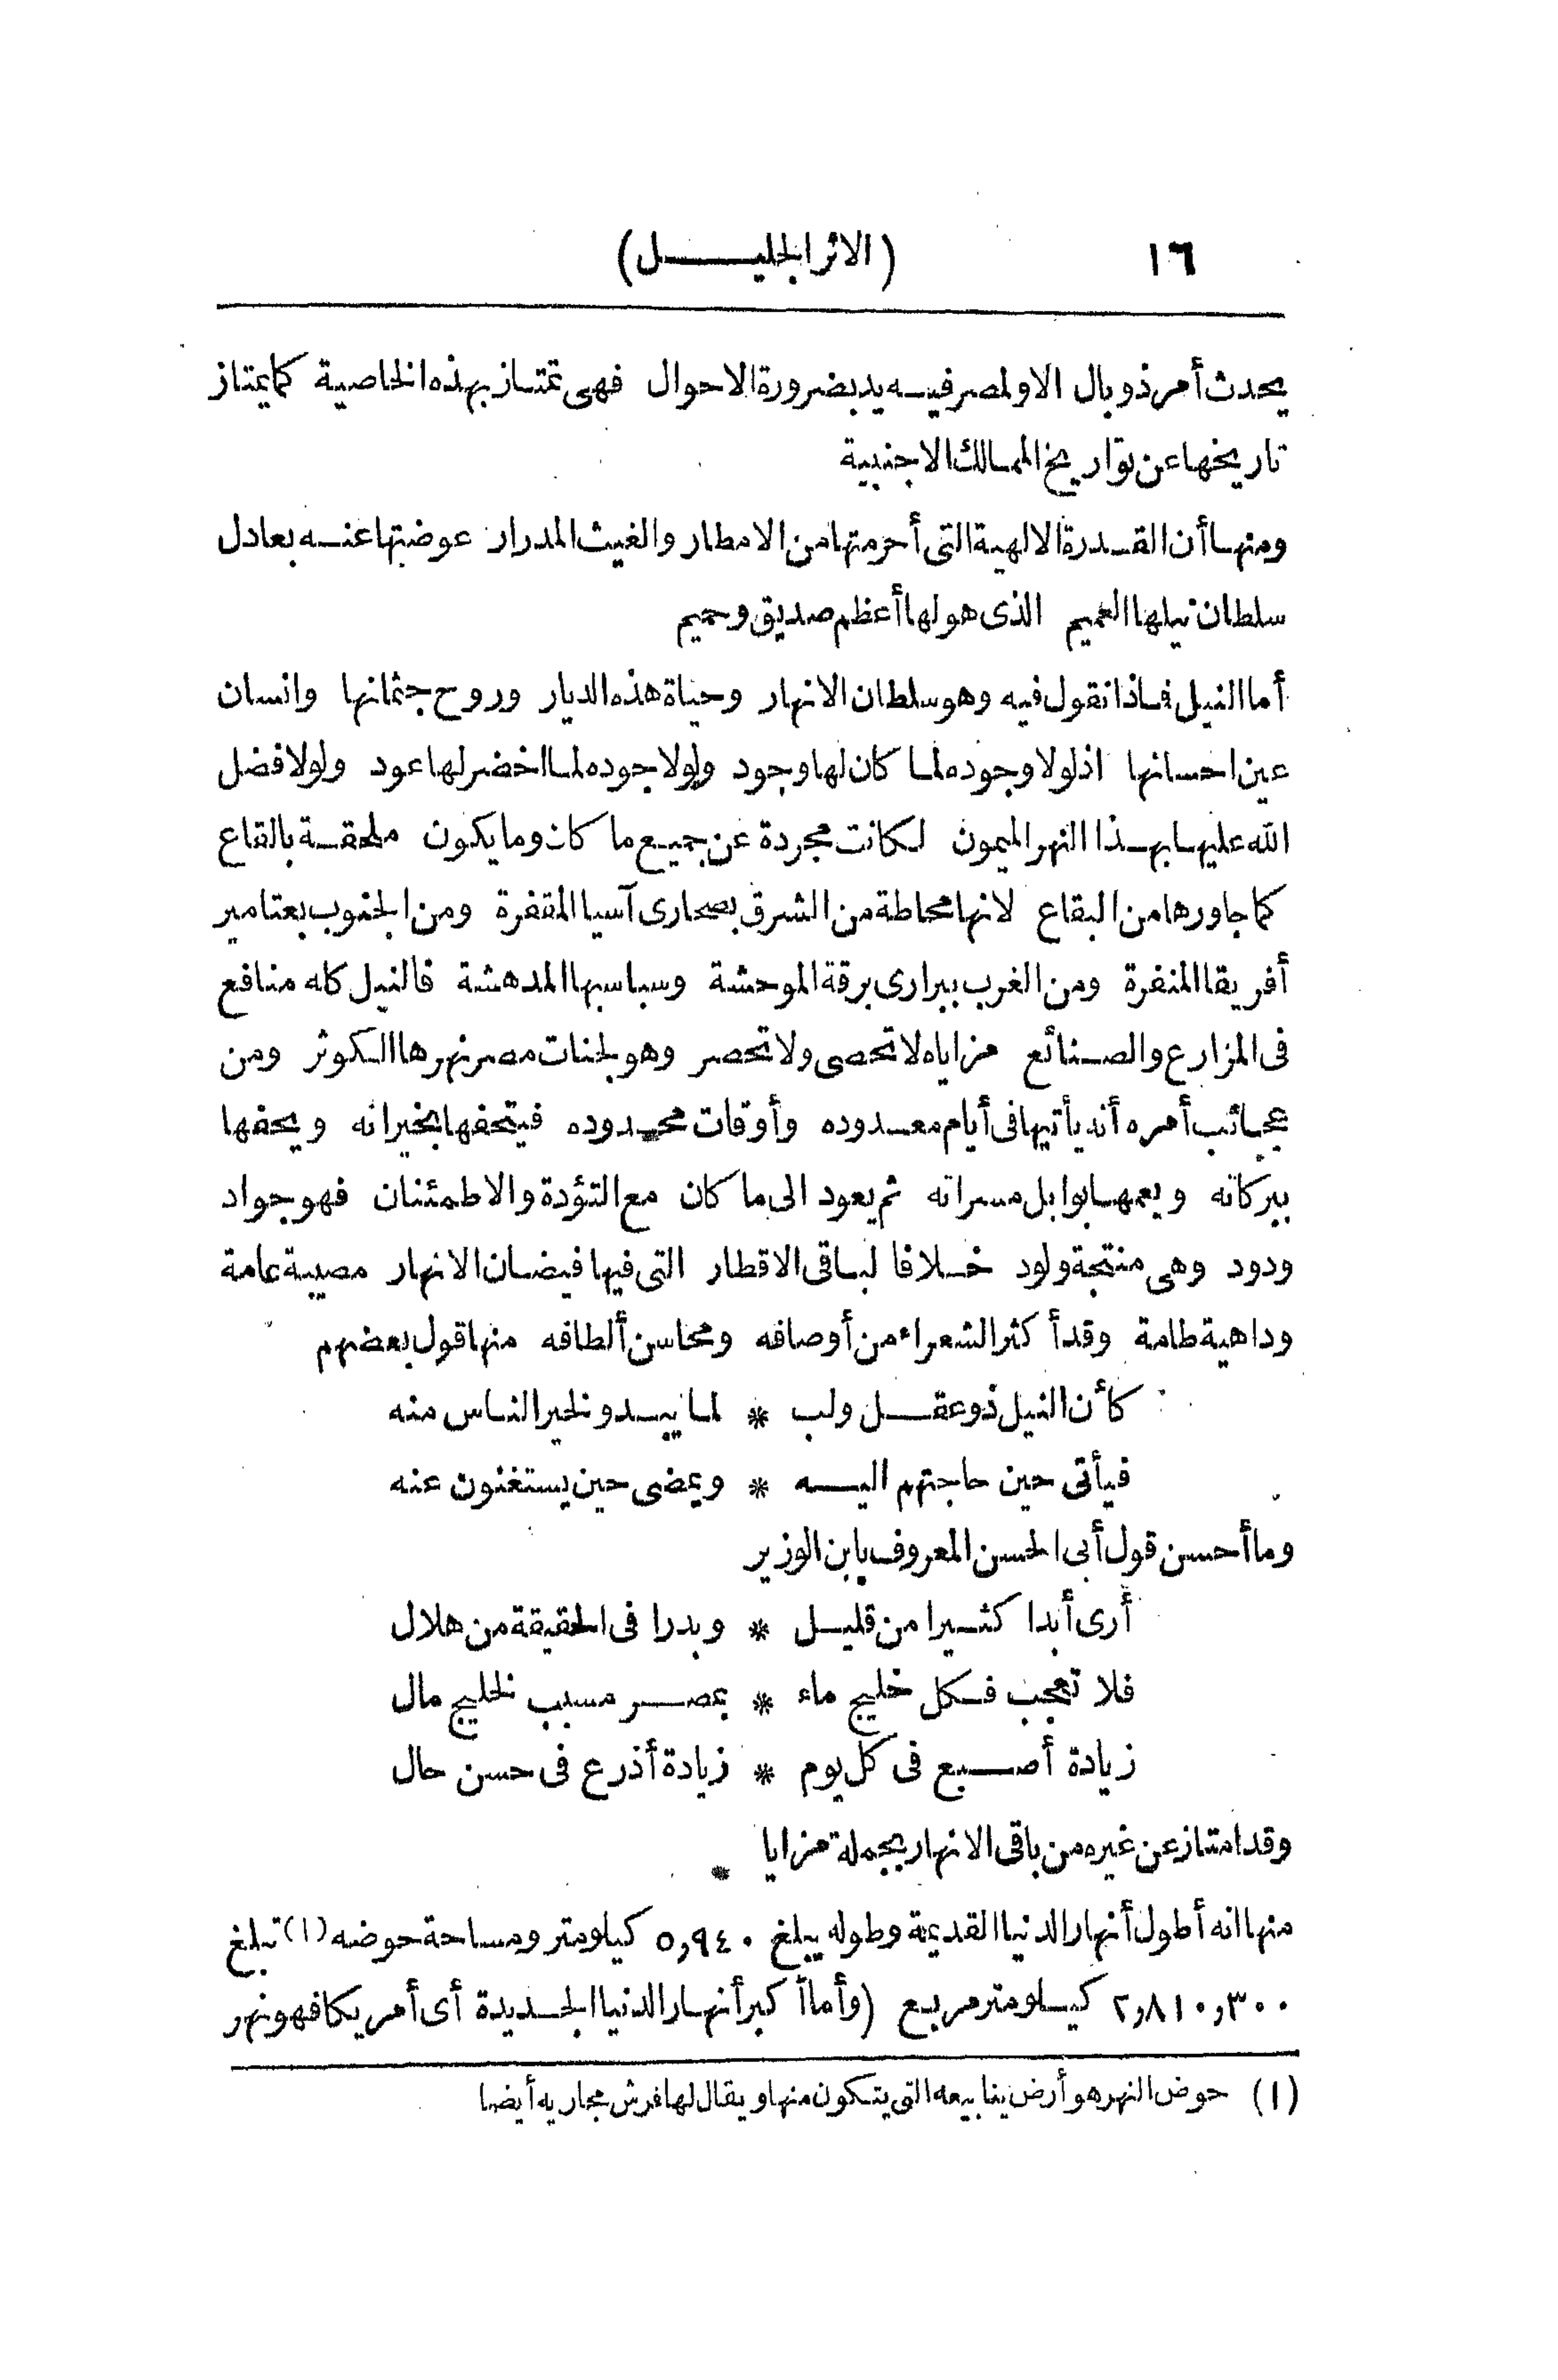 ١٦ (الاثر الجليل)
يحدث أمر ذو بال الا ولمصر فيه يد بضرورة الاحوال فهى تمتاز بهذه الخاصية كما يمتاز
تاريخها عن تواريخ الممالك الاجنبية
ومنها أن القدرة الالهية التى أحرمتها من الامطار والغيث المدرار عوضتها عنه بعادل
سلطان نيلها العميم الذى هو لها أعظم صديق وحميم
أما النيل فماذا نقول فيه وهو سلطان الانهار وحياة هذه الديار وروح جثمانها وانسان
عين احسانها اذ لولا وجوده لما كان لها وجود ولولا جوده لما اخضر لها عود ولولا فضل
الله عليها بهذا النهر الميمون لكانت مجردة عن جميع ما كان وما يكون ملحقة بالقاع
كما جاورها من البقاع لانها محاطة من الشرق بصحارى آسيا المقفرة ومن الجنوب بعتامير
أفريقا المنفرة ومن الغرب ببرارى برقة الموحشة وسباسبها المدهشة فالنيل كله منافع
فى المزارع والصنائع مزاياه لا تحصى ولا تحصر وهو لجنات مصر نهرها الكوثر ومن
عجائب أمره أنه يأتيها فى أيام معدوده وأوقات محدوده فيتحفها بخيراته ويحفها
ببركاته ويعمها بوابل مسراته ثم يعود الى ما كان مع التؤدة والاطمئنان فهو جواد
ودود وهى منتجة ولود خلافا لباقى الاقطار التى فيها فيضان الانهار مصيبة عامة
وداهية طامة وقد أكثر الشعراء من أوصافه ومحاسن ألطافه منها قول بعضهم
كأن النيل ذو عقل ولب * لما يبدو لخير الناس منه
فيأتى حين حاجتهم اليه * ويمضى حين يستغنون عنه
وما أحسن قول أبى الحسن المعروف بابن الوزير
أرى أبدا كثيرا من قليل * وبدرا فى الحقيقة من هلال
فلا تعجب فكل خليج ماء * بمصر مسبب لخليج مال
زيادة أصبع فى كل يوم * زيادة أذرع فى حسن حال
وقد امتاز عن غيره من باقى الانهار بجملة مزايا
منها انه أطول أنهار الدنيا القديمة وطوله يبلغ ٥,٩٤٠ كيلومتر ومساحة حوضه (١) تبلغ
٢,٨١٠,٣٠٠ كيلومتر مربع (وأما أكبر أنهار الدنيا الجديدة أى أمريكا فهو نهر
(١) حوض النهر هو أرض ينابيعه التى يتكون منها ويقال لها فرش مجاريه أيضا